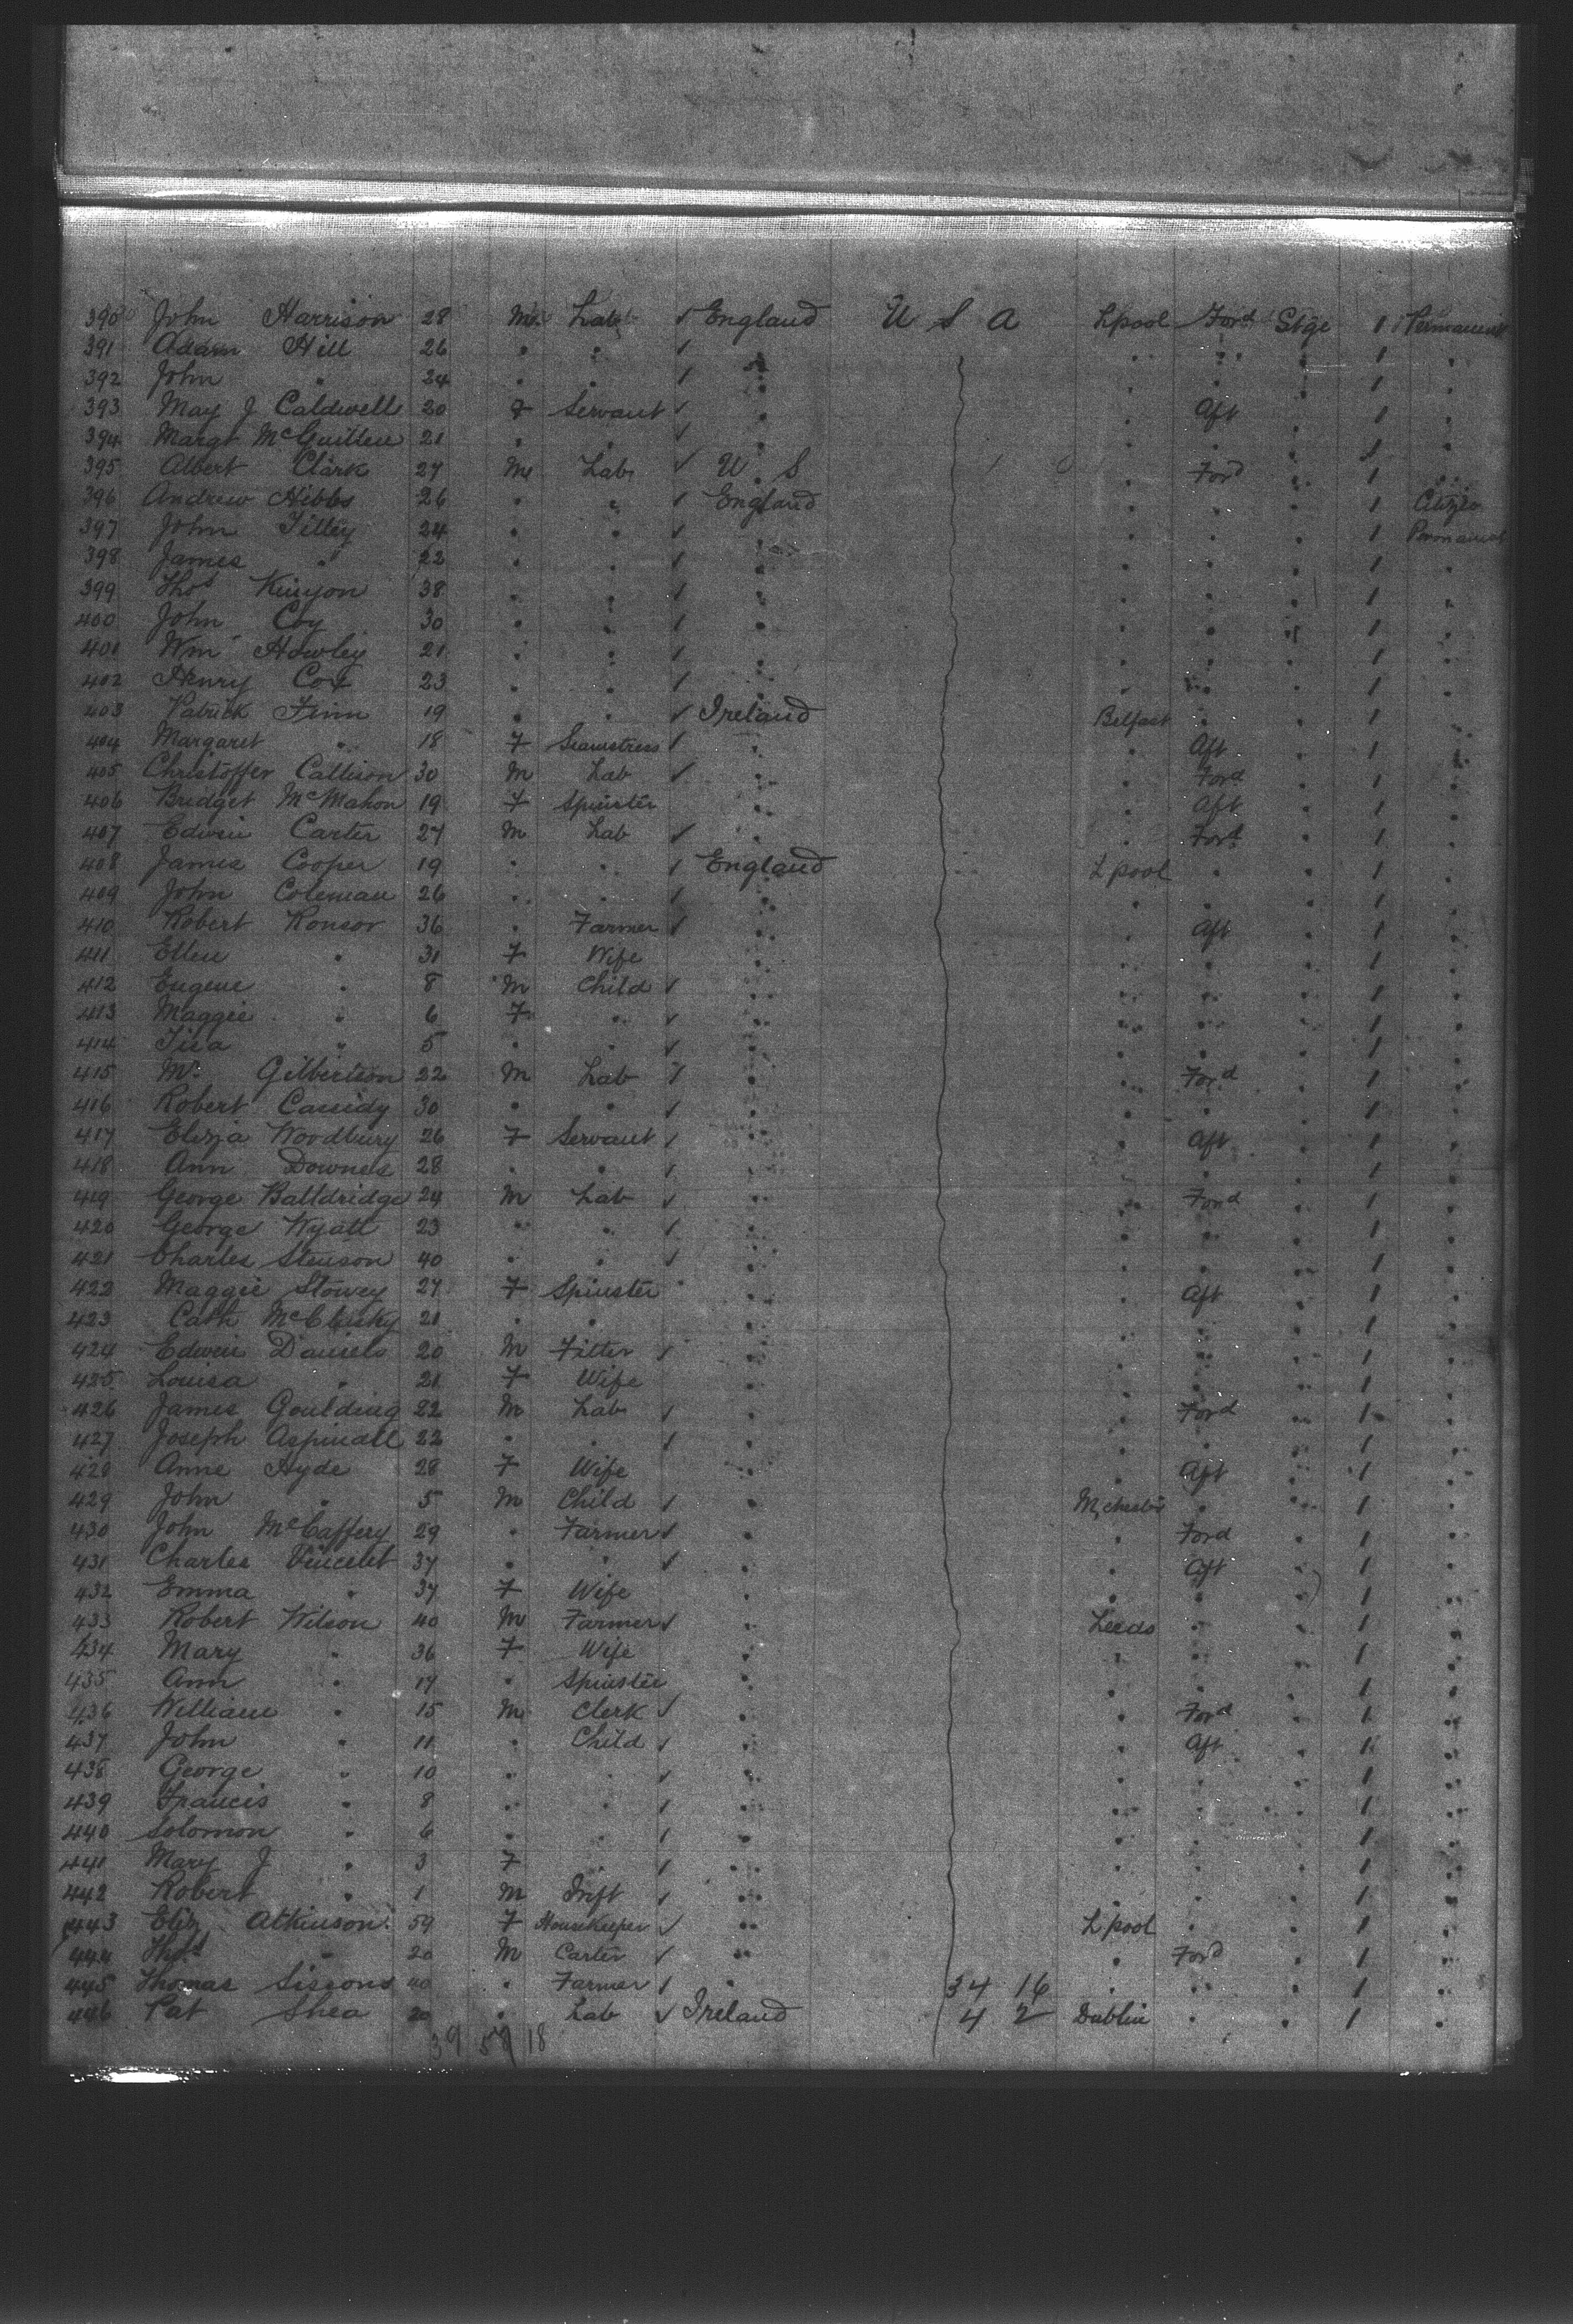 390 John Harrison 28 M Lab England U S A Lpool Ford Stge 1 Permanent
391 Adam Hill 26 " " " " " " 1 "
392 John " 24 " " " " " " 1 "
393 May J Caldwell 20 F Servant " " Aft " 1 "
394 Margt McQuillen 21 " " " " " " 1 "
395 Albert Clark 27 M Lab U S " Ford " 1
396 Andrew Hibbs 26 " " England " " " 1 Citizen
397 John Tilley 24 " " " " " " 1 Permanent
398 James " 22 " " " " " " 1 "
399 Thos Kinyon 38 " " " " " " 1 "
400 John Coy 30 " " " " " " 1 "
401 Wm Howley 21 " " " " " " 1 "
402 Henry Cox 23 " " " " " " 1 "
403 Patrick Finn 19 " " Ireland Belfast " " 1 "
404 Margaret " 18 F Seamstress " " Aft " 1 "
405 Christoffer Callison 30 M Lab " " Ford " 1 "
406 Bridget McMahon 19 F Spinster " " Aft " 1 "
407 Edwin Carter 27 M Lab " " Ford " 1 "
408 James Cooper 19 " " England Lpool " " 1 "
409 John Coleman 26 " " " " " " 1 "
410 Robert Ronsor 36 " Farmer " " Aft " 1 "
411 Ellen " 31 F Wife " " " " 1 "
412 Eugene " 8 M Child " " " " 1 "
413 Maggie " 6 F " " " " " 1 "
414 " 5 " " " " " " 1 "
415 Gilbertson 22 M Lab " " Ford " 1 "
416 Robert Cassidy 30 " " " " " " 1 "
417 Eliza Woodbury 26 F Servant " " Aft " 1 "
418 Ann Downes 28 " " " " " " 1 "
419 George Balldridge 24 M Lab " " Ford " 1 "
420 George Wyatt 23 " " " " " " 1 "
421 Charles Stenson 40 " " " " " " 1 "
422 Maggie Stowey 27 F Spinster " " Aft " 1 "
423 Cath McClusky 21 " " " " " " 1 "
424 Edwin Daniels 20 M Fitter " " " " 1 "
425 Louisa " 21 F Wife " " " " 1 "
426 James Goulding 22 M Lab " " Ford " 1 "
427 Joseph Aspinall 22 " " " " " " 1 "
428 Anne Hyde 28 F Wife " " Aft " 1 "
429 John " 5 M Child " Mchester " " 1 "
430 John McCaffery 29 " Farmer " " Ford " 1 "
431 Charles Vincent 37 " " " " Aft " 1 "
432 Emma " 37 F Wife " " " " 1 "
433 Robert Wilson 40 M Farmer " Leeds " " 1 "
434 Mary " 36 F Wife " " " " 1 "
435 Ann " 17 " Spinster " " " " 1 "
436 William " 15 M Clerk " " Ford " 1 "
437 John " 11 " Child " " Aft " 1 "
438 George " 10 " " " " " " 1 "
439 Francis " 8 " " " " " " 1 "
440 Solomon " 6 " " " " " " 1 "
441 Mary J " 3 F " " " " " 1 "
442 Robert " 1 M Inft " " " " 1 "
443 Eliz Atkinson 59 F Housekeeper " Lpool " " 1 "
444 Thos " 20 M Carter " " Ford " 1 "
445 Thomas Sissons 40 " Farmer " 34 16 " " " 1 "
446 Pat Shea 20 " Lab Ireland 4 2 Dublin " " 1 "
39 58 18